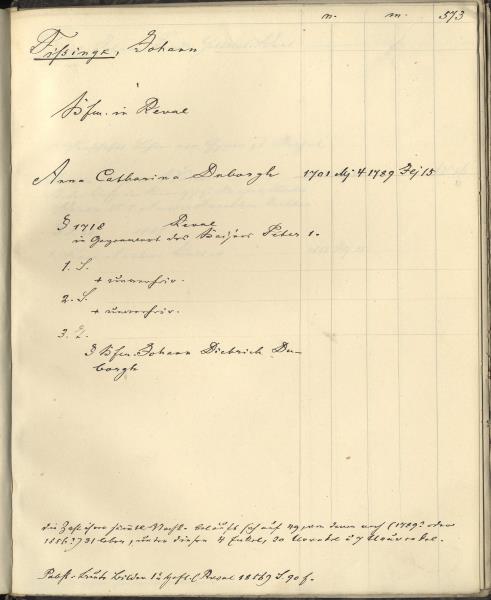 n. m. 573
Fißingk, Johann
Kfm. in Reval
Anna Catharina Duborgh 1701 Mj 4 1789 Fej 15
§ 1718 Reval
in Gegenwart des Kaisers Peter 1.
1. S.
+ unverheir.
2. S.
+ unverheir.
3. T.
§ Kfm. Johann Dietrich Du-
borgh
die Zahl ihrer sämtl. Nachk. beläuft sich auf 49, von denen noch (1789? oder
1856?) 31 leben, unter diesen 4 Enkel, 20 Urenkel u 7 Ururenkel.
Pabst: Bunte Bilder 1. Heft (Reval 1856) S. 90 f.